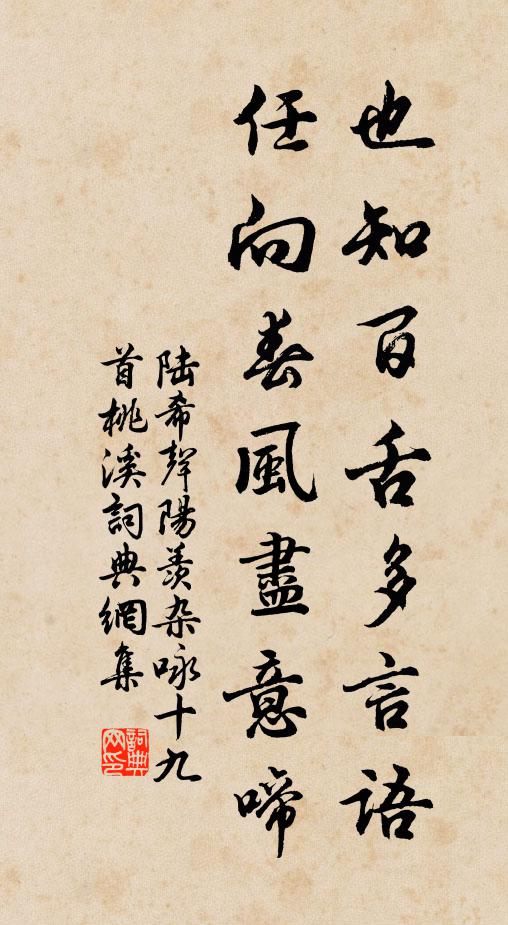 也知百舌多言語
任向春風盡意啼
陸希聲陽羨杂咏十九
首桃溪詞典網集
詞典網印